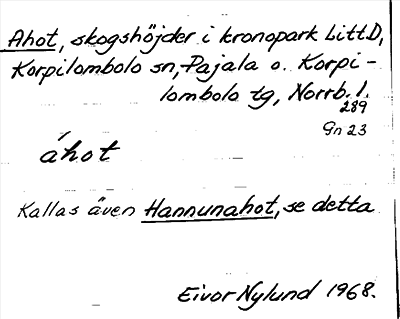 Ahot, skogshöjder i kronopark Litt.D,
Korpilombolo sn, Pajala o. Korpi-
lombolo tg, Norrb. l.
289
Gn 23
áhot
Kallas även Hannunahot, se detta
Eivor Nylund 1968.